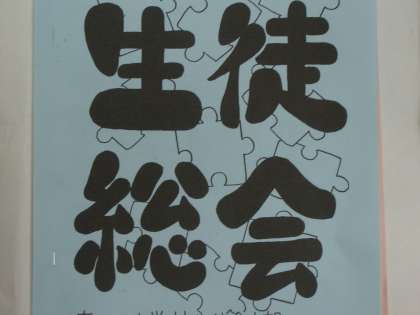 生徒
総会